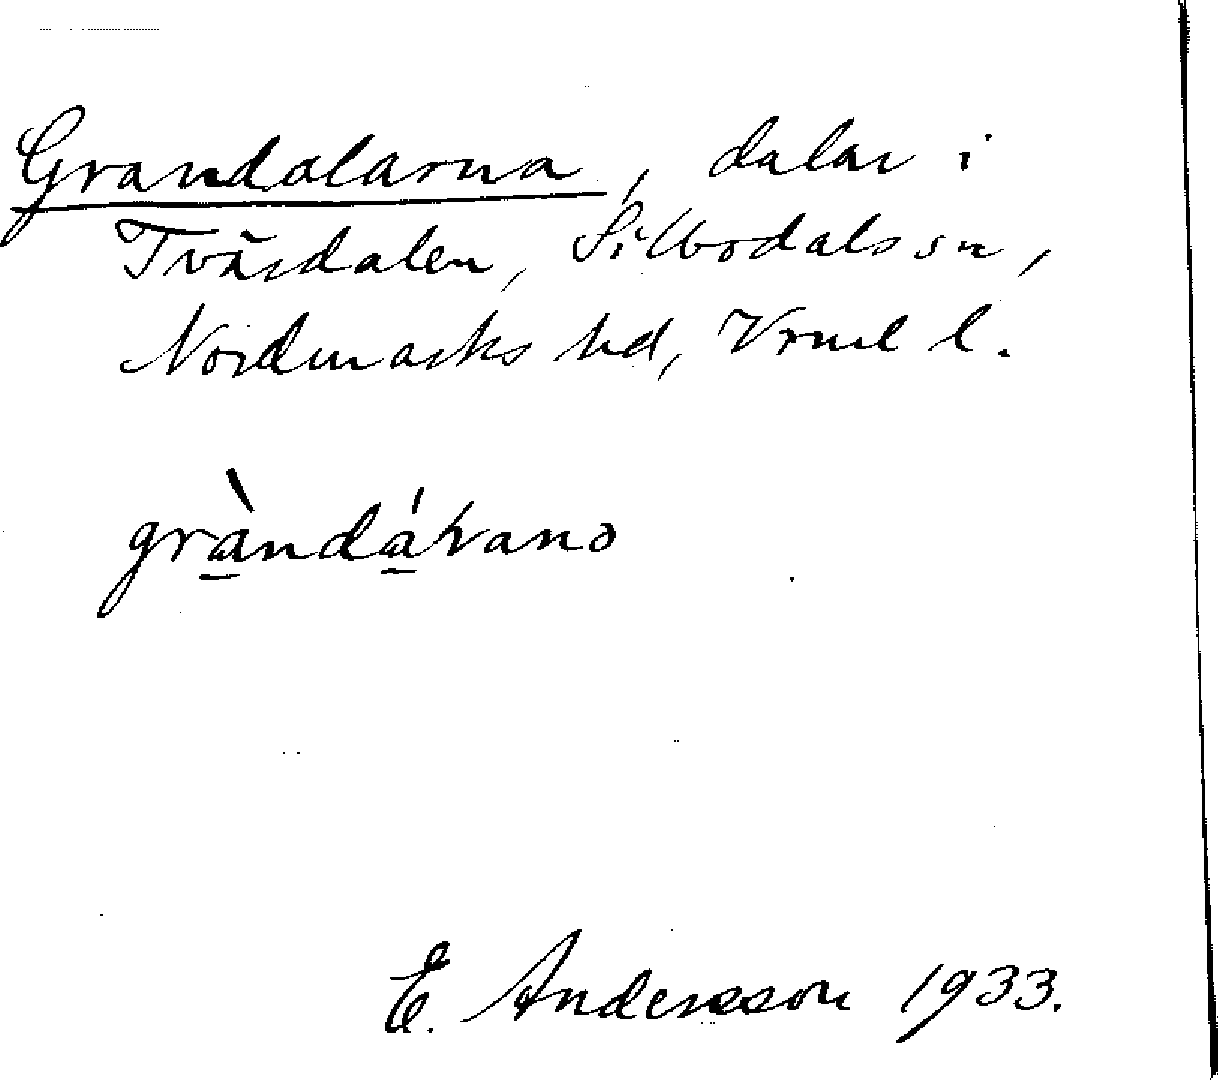 Grandalarna, dalar i
Tvärdalen, Silbodals sn,
Nordmarks hd, Vrml l.
grà̱ndá̱ɫrano
E. Andersson 1933.